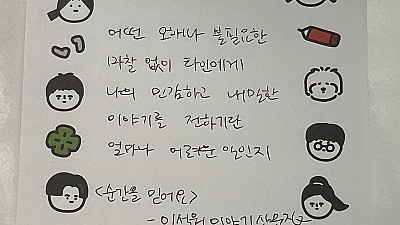 어떤 오해나 불필요한
마찰 없이 타인에게
나의 민감하고 내밀한
이야기를 전하기란
얼마나 어려운 일인지
<순간을 믿어요>
- 이석원 이야기산문집